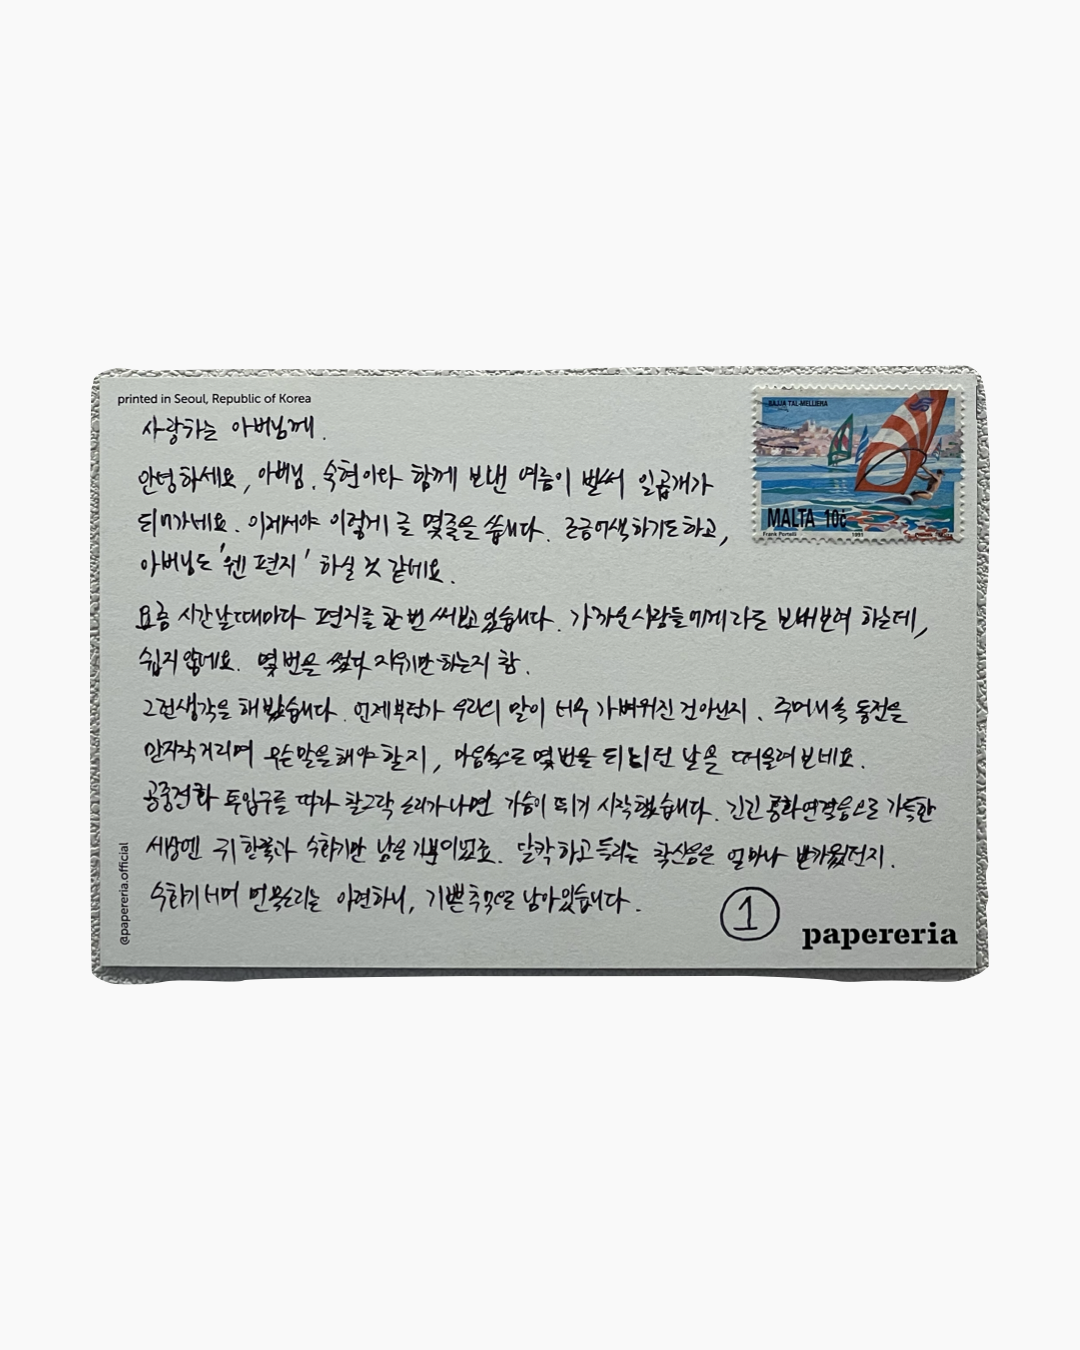 printed in Seoul, Republic of Korea
사랑하는 아버님께.
안녕하세요, 아버님. 숙현이랑 함께 보낸 여름이 벌써 일곱개가
되어가네요. 이제서야 이렇게 글 몇줄을 씁니다. 조금 어색하기도 하고,
아버님도 '웬 편지' 하실 것 같네요.
요즘 시간날때마다 편지를 한 번 써보고 있습니다. 가까운 사람들에게라도 보내보려 하는데,
쉽지 않네요. 몇 번을 썼다 지우기만 하는지 참.
그런 생각을 해봤습니다. 언제부턴가 우리의 말이 너무 가벼워진 건 아닌지. 주머니 속 동전을
만지작거리며 무슨 말을 해야 할지, 마음속으로 몇 번을 되뇌던 날을 떠올려보네요.
공중전화 투입구를 따라 찰그락 소리가 나면 가슴이 뛰기 시작했습니다. 긴긴 통화연결음으로 가득한
세상엔 귀 한쪽과 수화기만 남은 기분이었죠. 달칵하고 들리는 확신음은 얼마나 반가웠던지.
수화기 너머 먼 목소리는 아련하니, 기쁜 추억으로 남아있습니다.
1
papereria
@papereria.official
BAJJA TAL-MELLIEĦA
MALTA 10c
Frank Portelli
1991